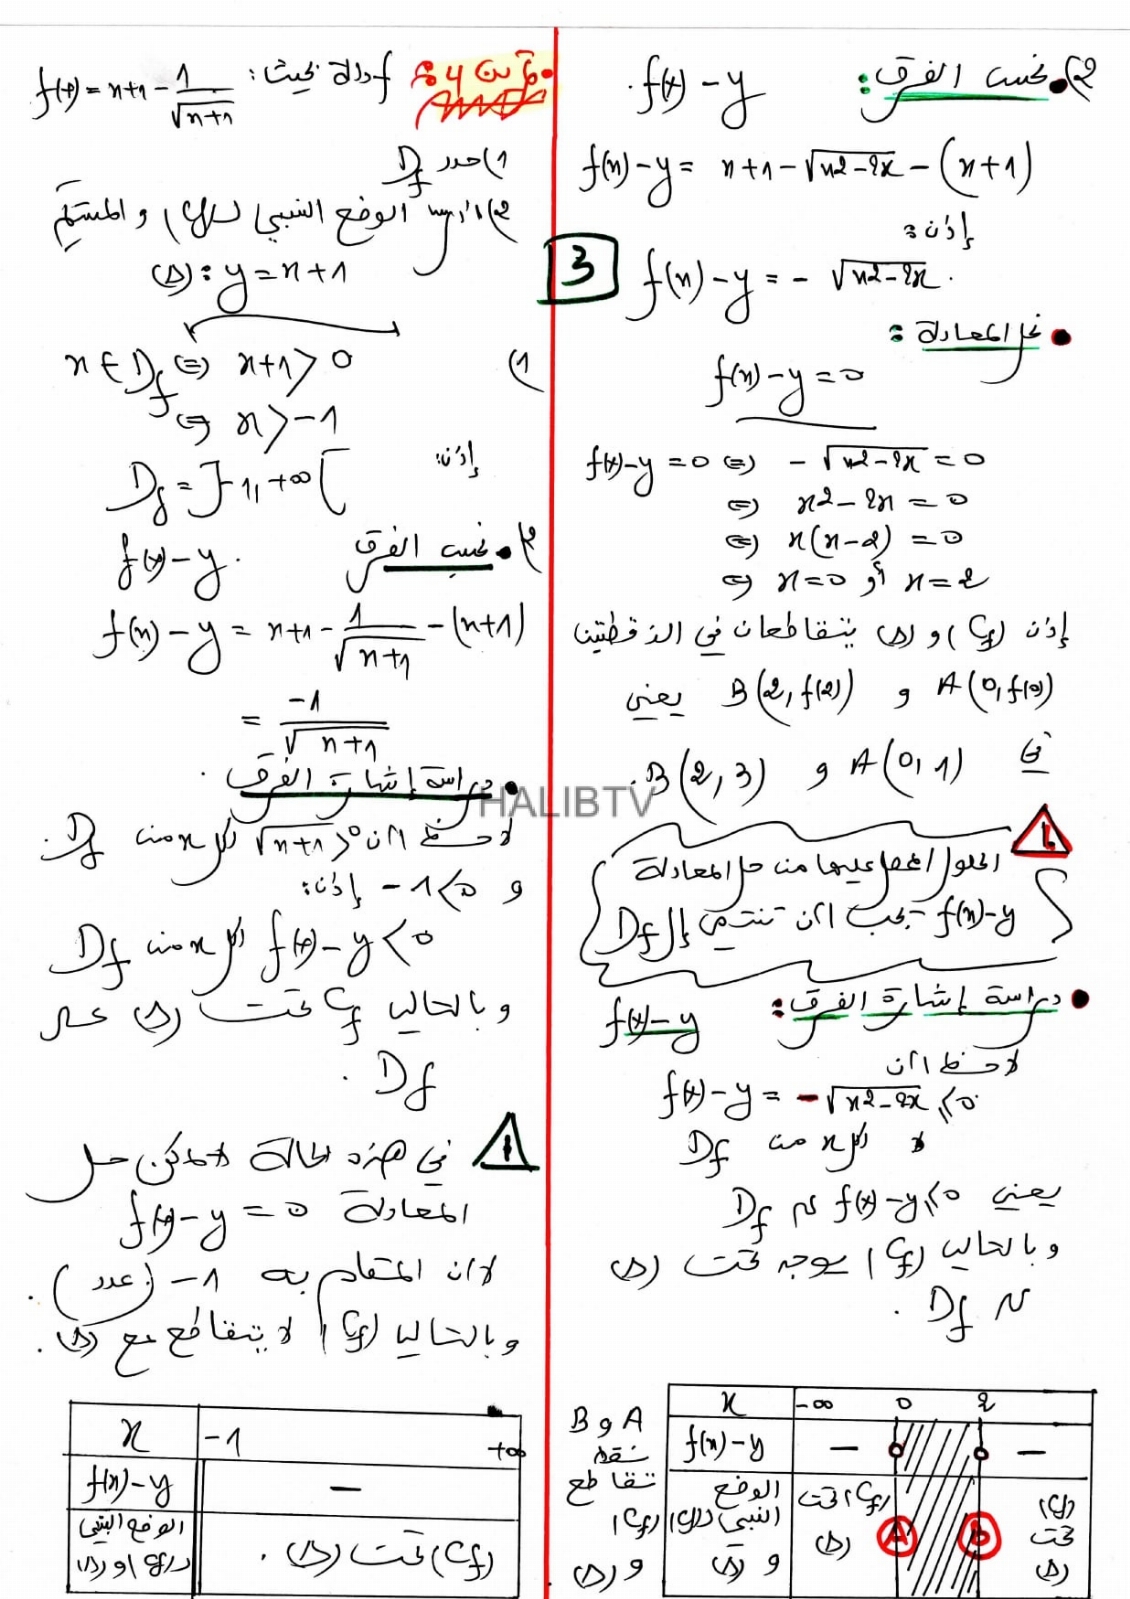 2) • نحسب الفرق : f(x) - y.
f(x) - y = x+1 - √x2-2x - (x+1)
إذن :
f(x) - y = - √x2-2x .
3
• نحل المعادلة :
f(x) - y = 0
f(x) - y = 0 ⇔ - √x2-2x = 0
⇔ x2 - 2x = 0
⇔ x(x-2) = 0
⇔ x = 0 أو x = 2
إذن (Cf) و (Δ) يتقاطعان في النقطتين
A(0, f(0)) و B(2, f(2)) يعني
A(0, 1) و B(2, 3).
الحلول المحصل عليها من حل المعادلة
f(x) - y يجب أن تنتمي إلى Df
• دراسة إشارة الفرق : f(x) - y
لاحظ أن
f(x) - y = - √x2-2x ⩽ 0
لكل x من Df
يعني f(x) - y ⩽ 0 على Df
وبالتالي (Cf) يوجد تحت (Δ)
على Df .
x -∞ 0 2
f(x) - y - -
الوضع النسبي لـ (Cf) و (Δ)
(Cf) تحت (Δ)
A B
(Cf) تحت (Δ)
A و B
نقط
تقاطع
(Cf)
و (Δ)
تمرين 4 : f دالة بحيث : f(x) = x+1 - 1/√x+1
1) حدد Df
2) ادرس الوضع النسبي لـ (Cf) والمستقيم
(Δ) : y = x+1
1) x ∈ Df ⇔ x+1 > 0
⇔ x > -1
إذن: Df = ]-1, +∞[
2) • نحسب الفرق f(x) - y.
f(x) - y = x+1 - 1/√x+1 - (x+1)
= -1/√x+1
• دراسة إشارة الفرق .
HALIBTV
لاحظ أن √x+1 > 0 لكل x من Df.
و -1 < 0 إذن:
f(x) - y < 0 لكل x من Df
وبالتالي Cf تحت (Δ) على
Df .
في هذه الحالة لا يمكن حل
المعادلة f(x) - y = 0
لأن المقام به -1 (عدد) .
وبالتالي (Cf) لا يتقاطع مع (Δ) .
x -1 +∞
f(x) - y -
الوضع النسبي
لـ (Cf) و (Δ)
(Cf) تحت (Δ) .